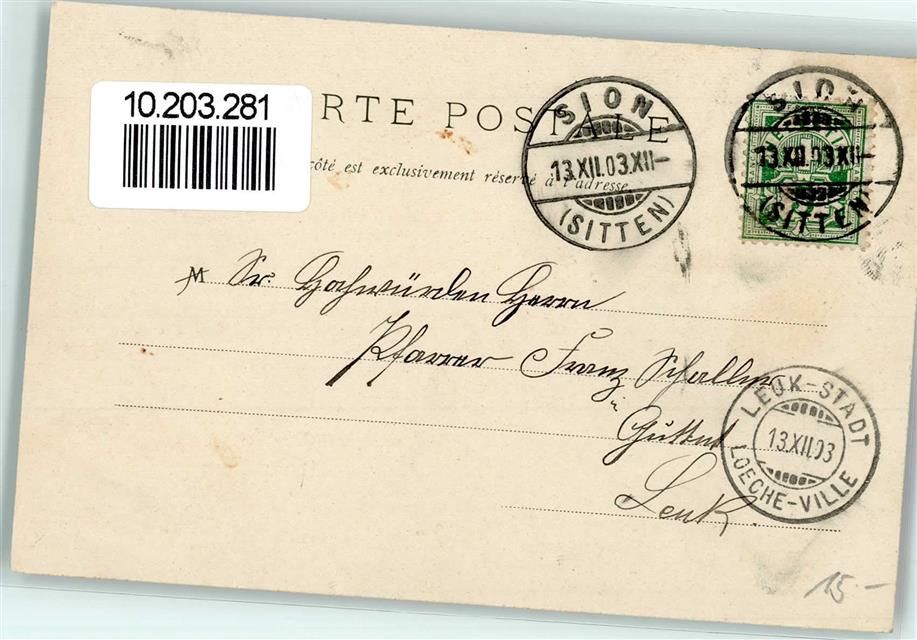 10.203.281
RTE POSTALE
côté est exclusivement réservé à l'adresse.
SION
13.XII.03.XII-
(SITTEN)
SION
13.XII.03.XII-
(SITTEN)
M Sr. Hochwürden Herrn
Pfarrer Franz Schaller
Leuk.
LEUK-STADT
13.XII.03
LOECHE-VILLE
15.-